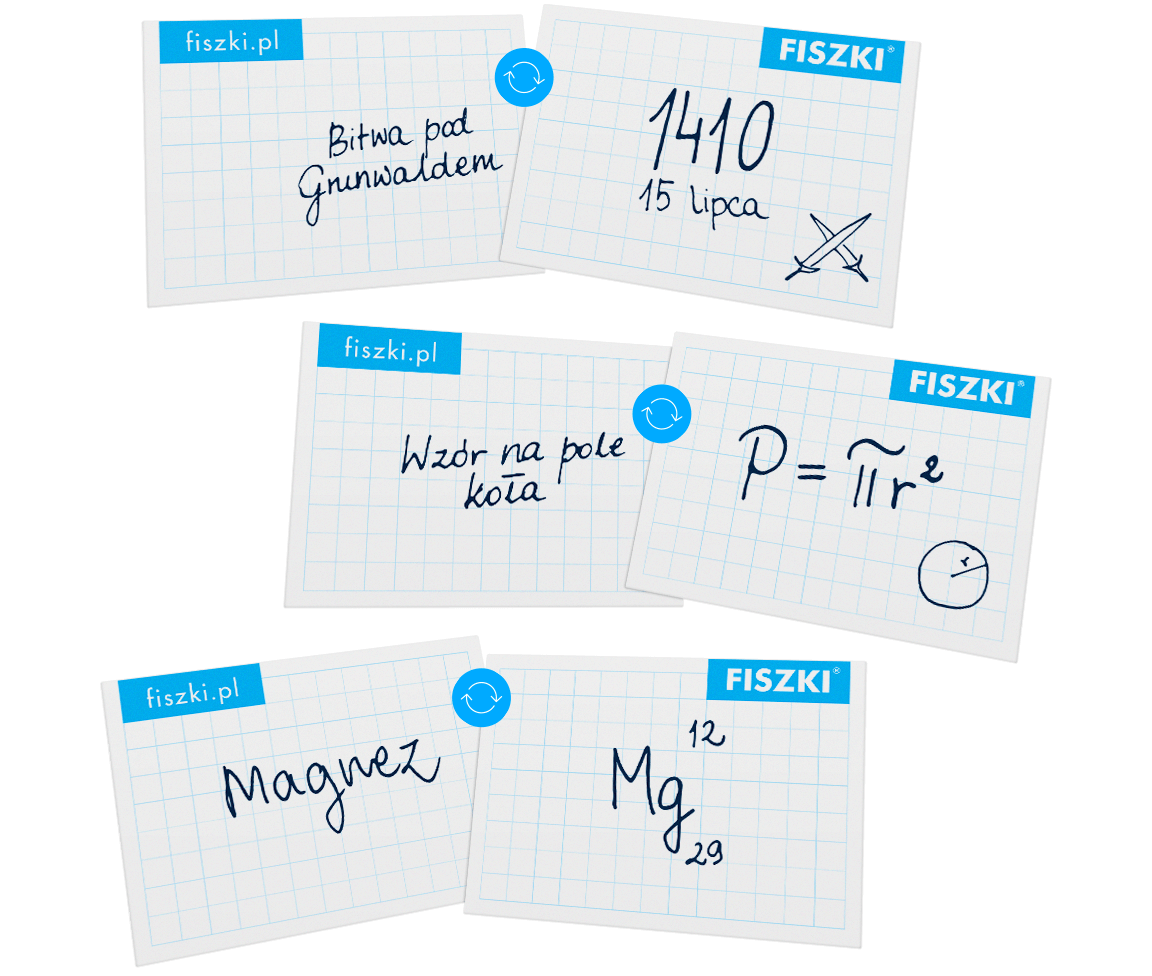 fiszki.pl
Bitwa pod
Grunwaldem
FISZKI®
1410
15 lipca
fiszki.pl
Wzór na pole
koła
FISZKI®
P = πr²
r
fiszki.pl
Magnez
FISZKI®
12
Mg
29